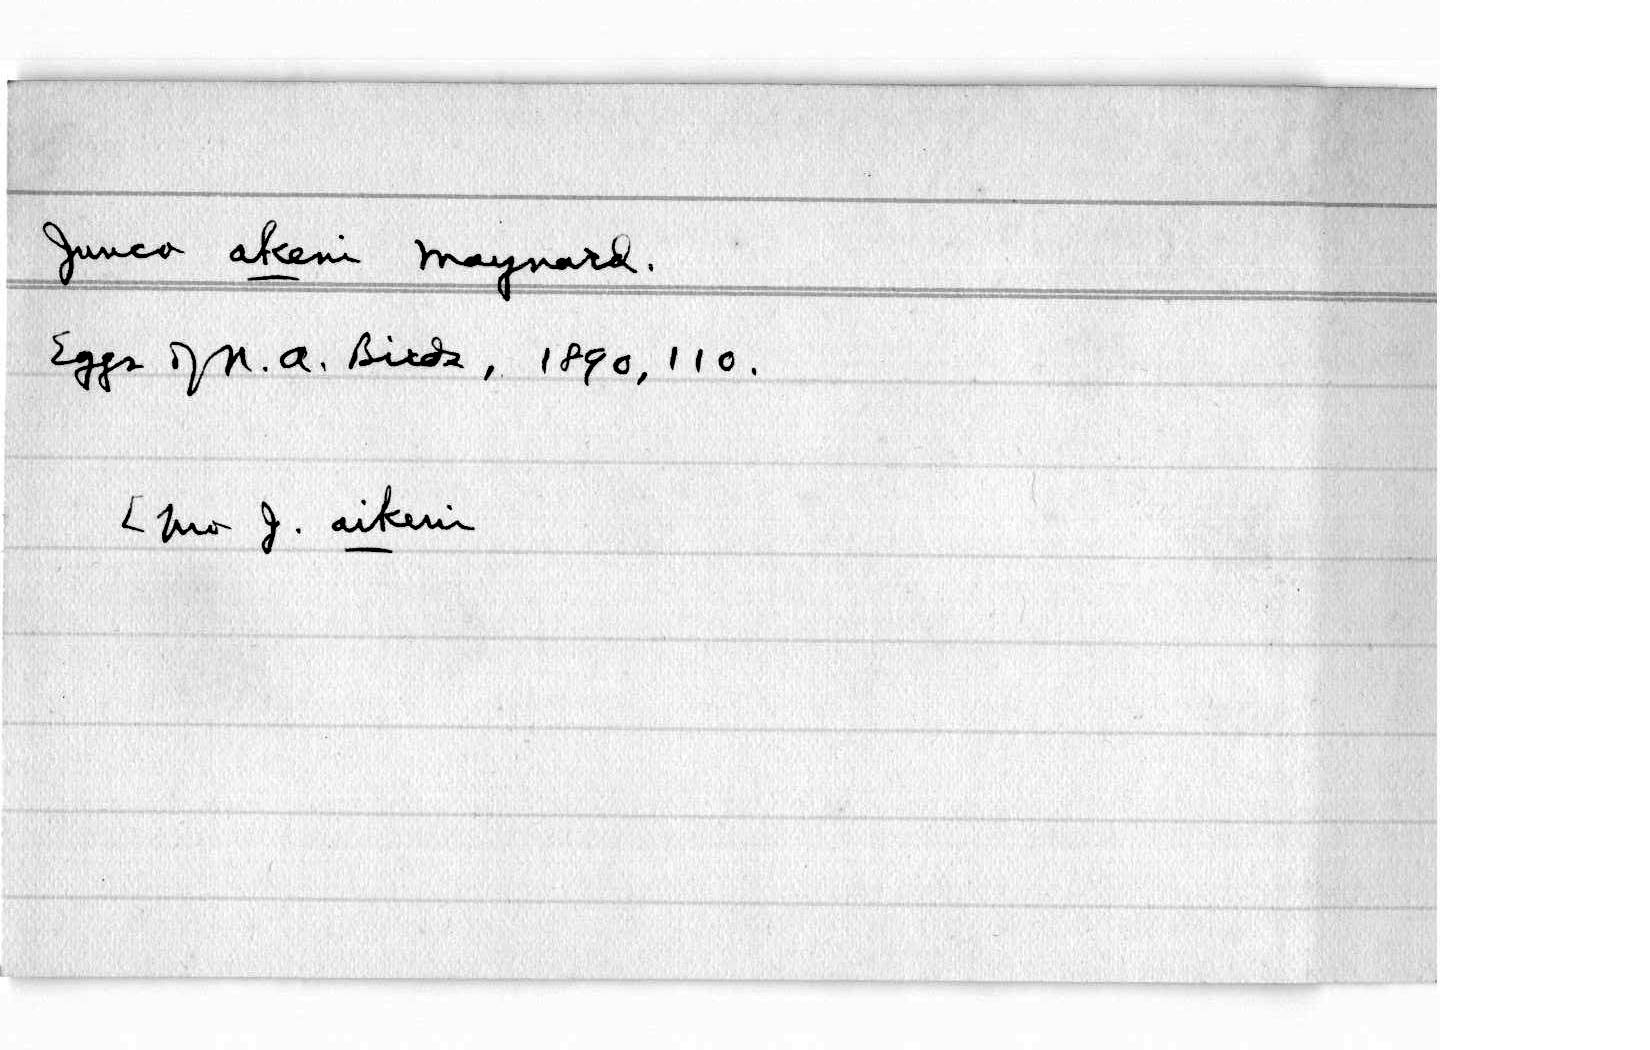 Junco akeni Maynard.
Eggs of N. A. Birds, 1890, 110.
[ J. aikeni